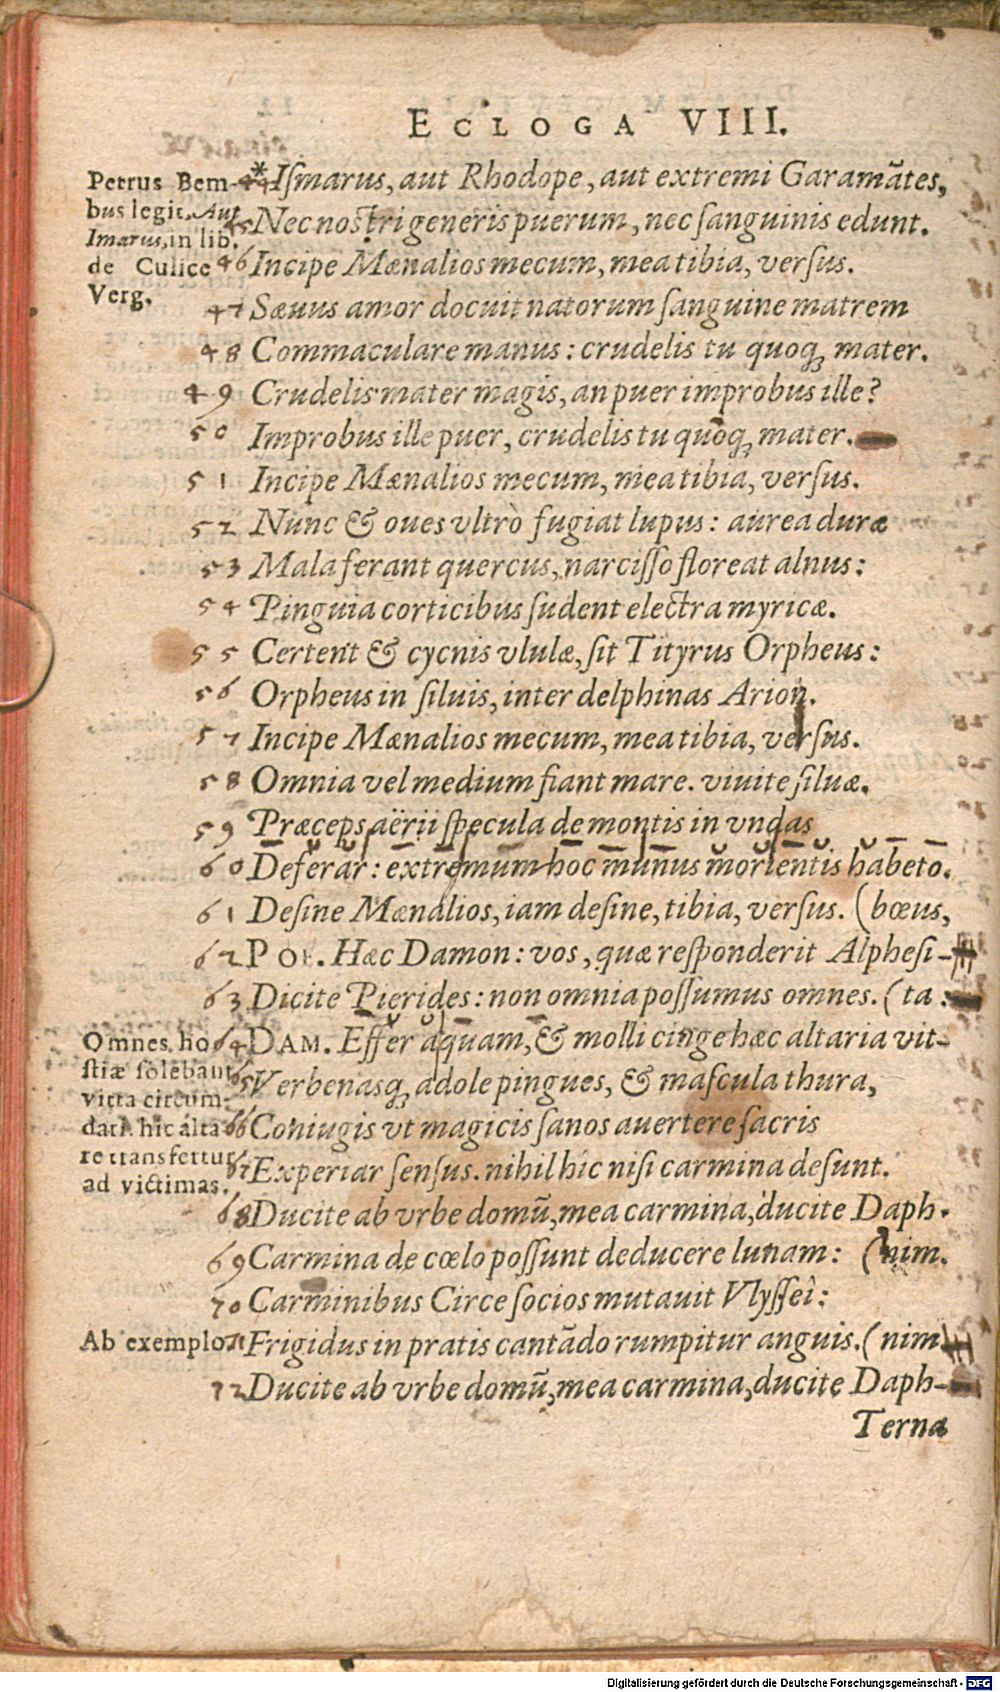 ECLOGA VIII.
Petrus Bem-
bus legit, Aut
Imarus, in lib.
de Culice
Verg.
44 *Iſmarus, aut Rhodope, aut extremi Garamātes,
45 Nec noſtri generis puerum, nec ſanguinis edunt.
46 Incipe Mænalios mecum, mea tibia, verſus.
47 Sæuus amor docuit natorum ſanguine matrem
48 Commaculare manus: crudelis tu quoq; mater.
49 Crudelis mater magis, an puer improbus ille?
50 Improbus ille puer, crudelis tu quoq; mater.
51 Incipe Mænalios mecum, mea tibia, verſus.
52 Nunc & oues vltrò fugiat lupus: aurea duræ
53 Mala ferant quercus, narciſſo floreat alnus:
54 Pinguia corticibus ſudent electra myricæ.
55 Certent & cycnis vlulæ, ſit Tityrus Orpheus:
56 Orpheus in ſiluis, inter delphinas Arion.
57 Incipe Mænalios mecum, mea tibia, verſus.
58 Omnia vel medium fiant mare. viuite ſiluæ.
59 Præceps aërii ſpecula de montis in vndas
60 Deferar: extremum hoc munus morientis habeto.
61 Deſine Mænalios, iam deſine, tibia, verſus. (bœus,
62 POE. Hæc Damon: vos, quæ reſponderit Alpheſi-
63 Dicite Pierides: non omnia poſſumus omnes. (ta:
Omnes ho
ſtiæ ſolebant
vitta circum-
dari. hic alta
re transfertur
ad victimas.
64 DAM. Effer aquam, & molli cinge hæc altaria vit-
65 Verbenasq; adole pingues, & maſcula thura,
66 Coniugis vt magicis ſanos auertere ſacris
67 Experiar ſenſus. nihil hîc niſi carmina deſunt.
68 Ducite ab vrbe domū, mea carmina, ducite Daph-
69 Carmina de cœlo poſſunt deducere lunam: (nim.
70 Carminibus Circe ſocios mutauit Vlyſſei:
Ab exemplo.
71 Frigidus in pratis cantādo rumpitur anguis. (nim
72 Ducite ab vrbe domū, mea carmina, ducite Daph-
Terna
Digitalisierung gefördert durch die Deutsche Forschungsgemeinschaft - DFG